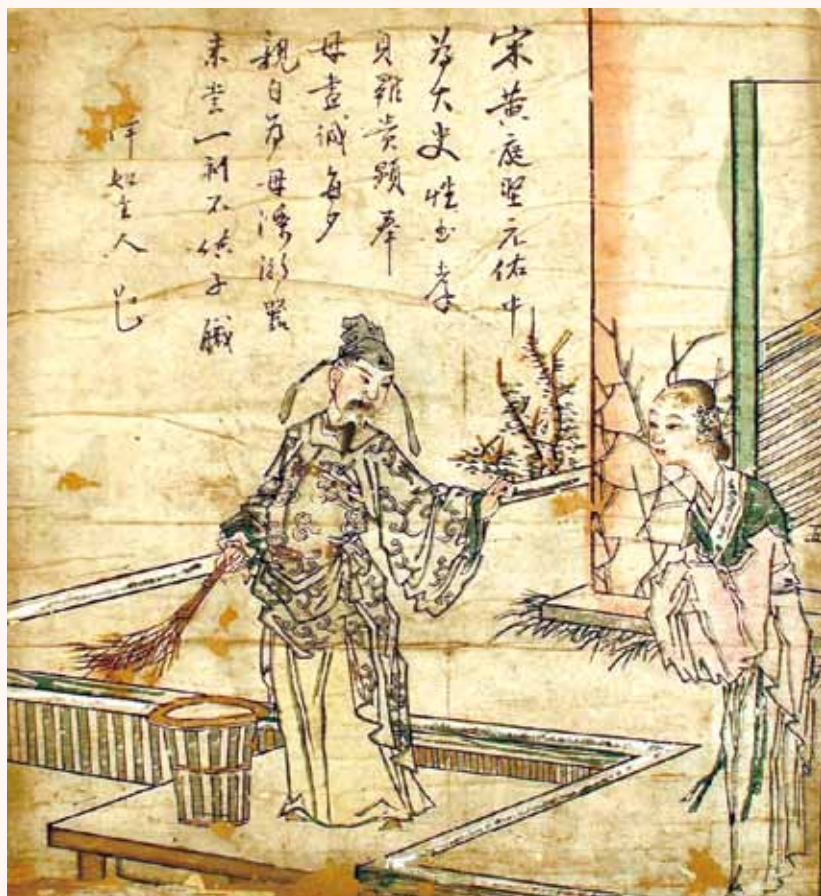 宋黄庭堅元佑中
為太史性至孝
身雖貴顯奉
母盡誠每夕
親自為母滌溺器
未嘗一刻不供子職
主人